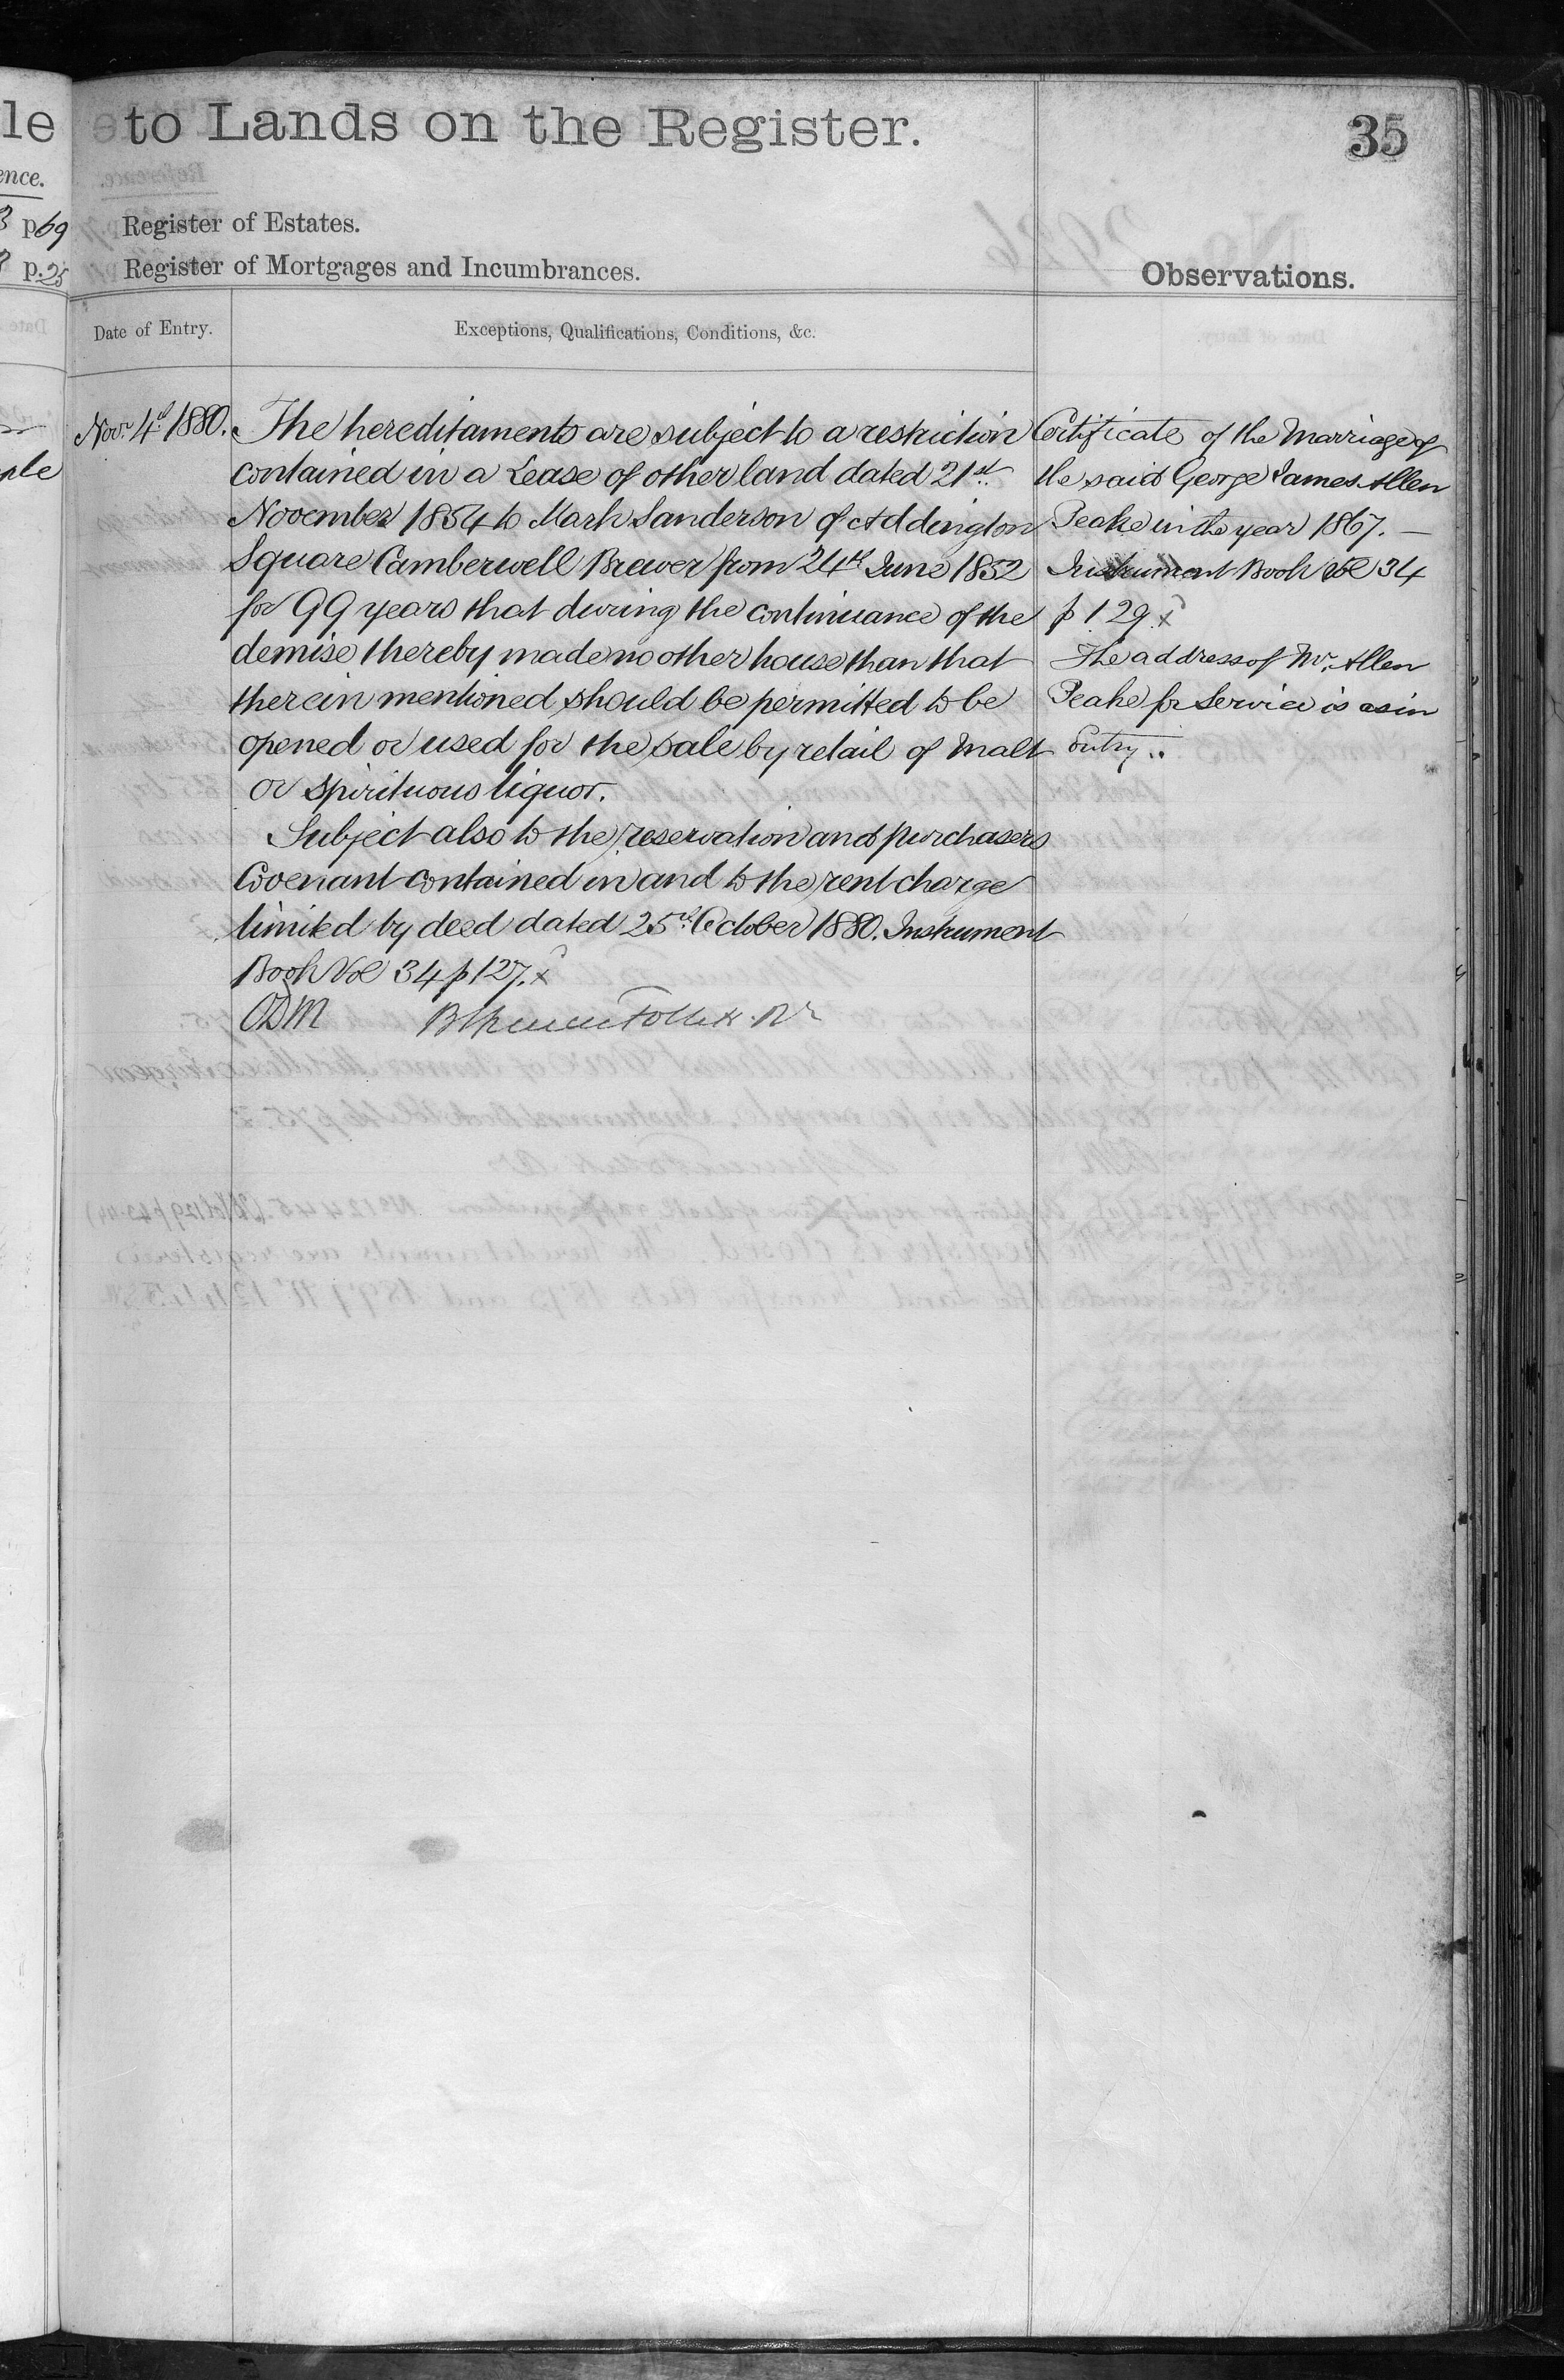 le to Lands on the Register.
35
ence.
p 69
p. 25
Register of Estates.
Register of Mortgages and Incumbrances.
Observations.
Date of Entry.
Exceptions, Qualifications, Conditions, &c.
ple
Novr. 4th 1880.
The hereditaments are subject to a restriction
contained in a Lease of other land dated 21st
November 1854 to Mark Sanderson of Addington
Square Camberwell Brewer from 24th June 1852
for 99 years that during the continuance of the
demise thereby made no other house than that
therein mentioned should be permitted to be
opened or used for the sale by retail of Malt
or Spirituous liquor.
Subject also to the reservation and purchasers
Covenant contained in and to the rent charge
limited by deed dated 25th October 1880. Instrument
Book Vol 34 p 127. x
Follett
Certificate of the Marriage of
the said George James Allen
Peake in the year 1867. —
Instrument Book Vol 34
p 129 x
The address of Mr. Allen
Peake for Service is as in
Entry..